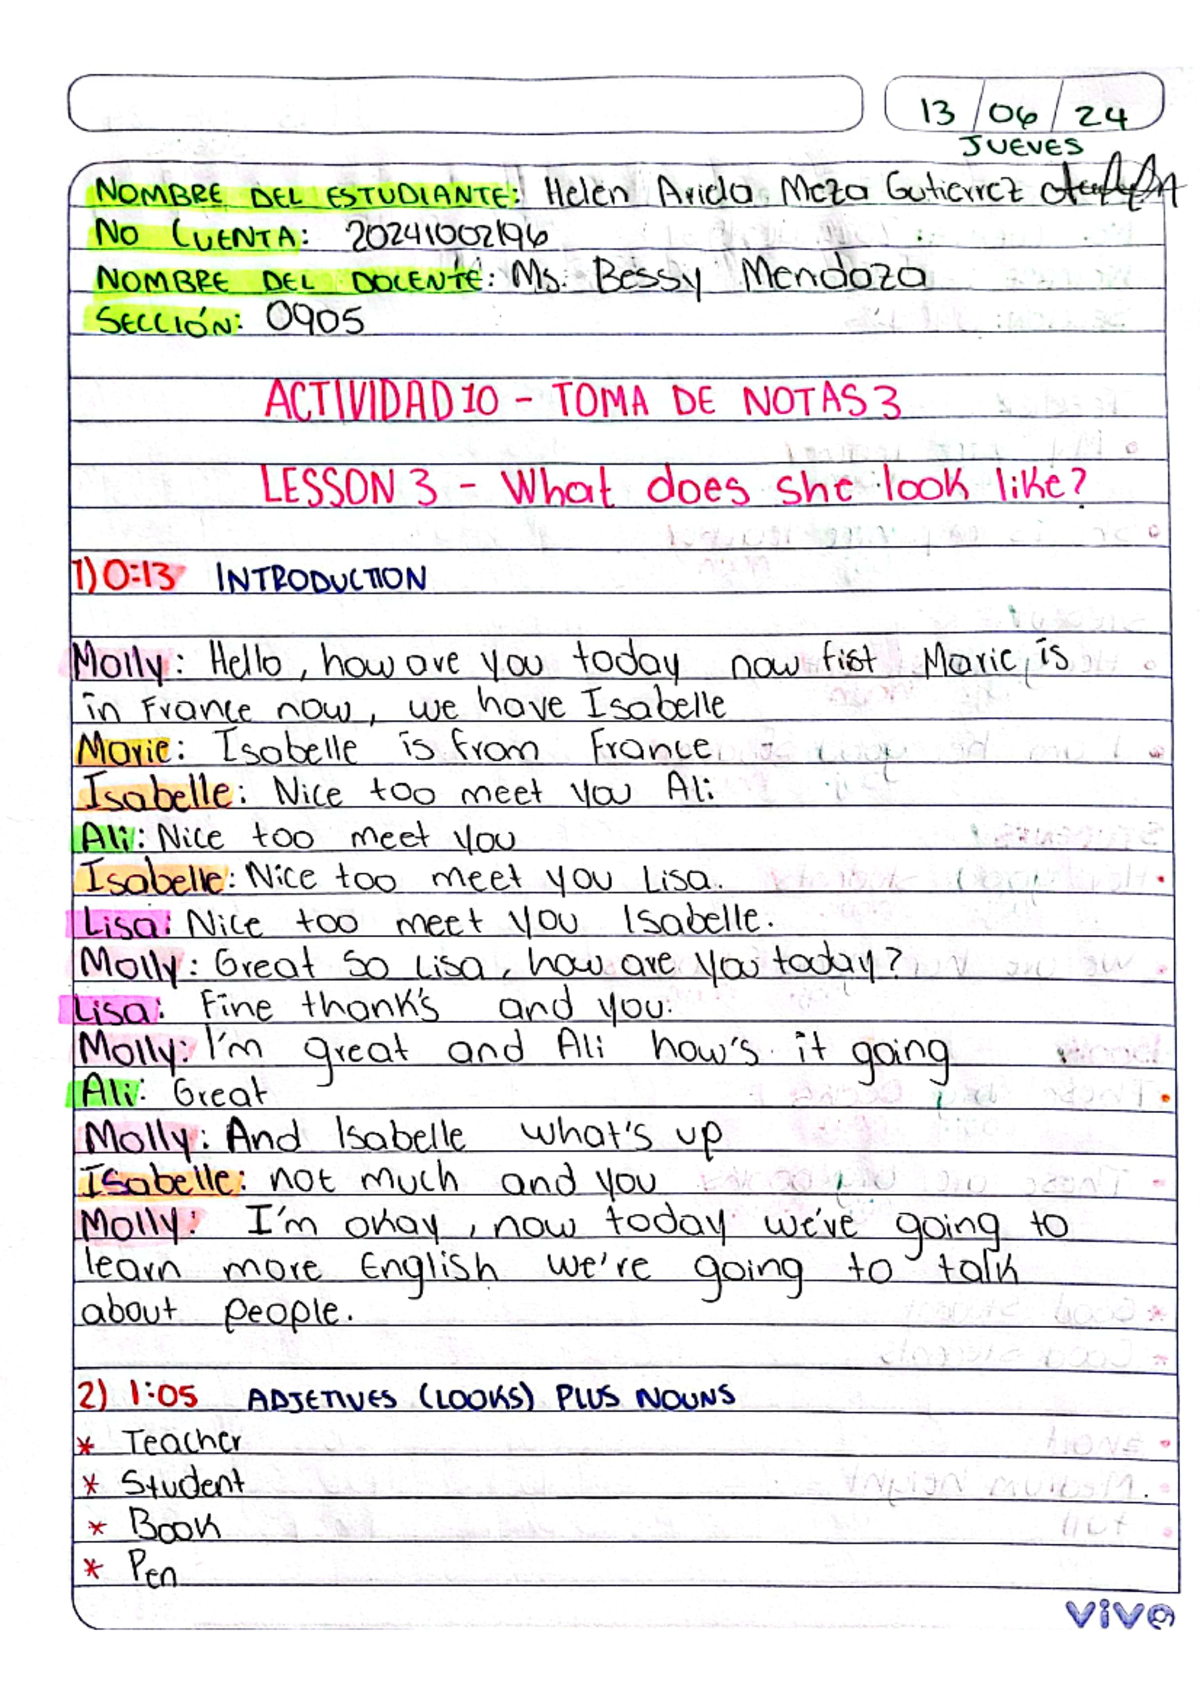 13/06/24
JUEVES
NOMBRE DEL ESTUDIANTE: Helen Arida Meza Gutierrez
No CUENTA: 20241002196
NOMBRE DEL DOCENTE: Ms. Bessy Mendoza
SECCIÓN: 0905
ACTIVIDAD 10 - TOMA DE NOTAS 3
LESSON 3 - What does she look like?
1) 0:13 INTRODUCTION
Molly: Hello, how are you today now fist Marie is
in France now, we have Isabelle
Marie: Isabelle is from France
Isabelle: Nice too meet you Ali
Ali: Nice too meet you
Isabelle: Nice too meet you Lisa.
Lisa: Nice too meet you Isabelle.
Molly: Great so Lisa, how are you today?
Lisa: Fine thank's and you.
Molly: I'm great and Ali how's it going
Ali: Great
Molly: And Isabelle what's up
Isabelle: not much and you
Molly: I'm okay, now today we've going to
learn more English we're going to talk
about people.
2) 1:05 ADJETIVES (LOOKS) PLUS NOUNS
* Teacher
* Student
* Book
* Pen
vive